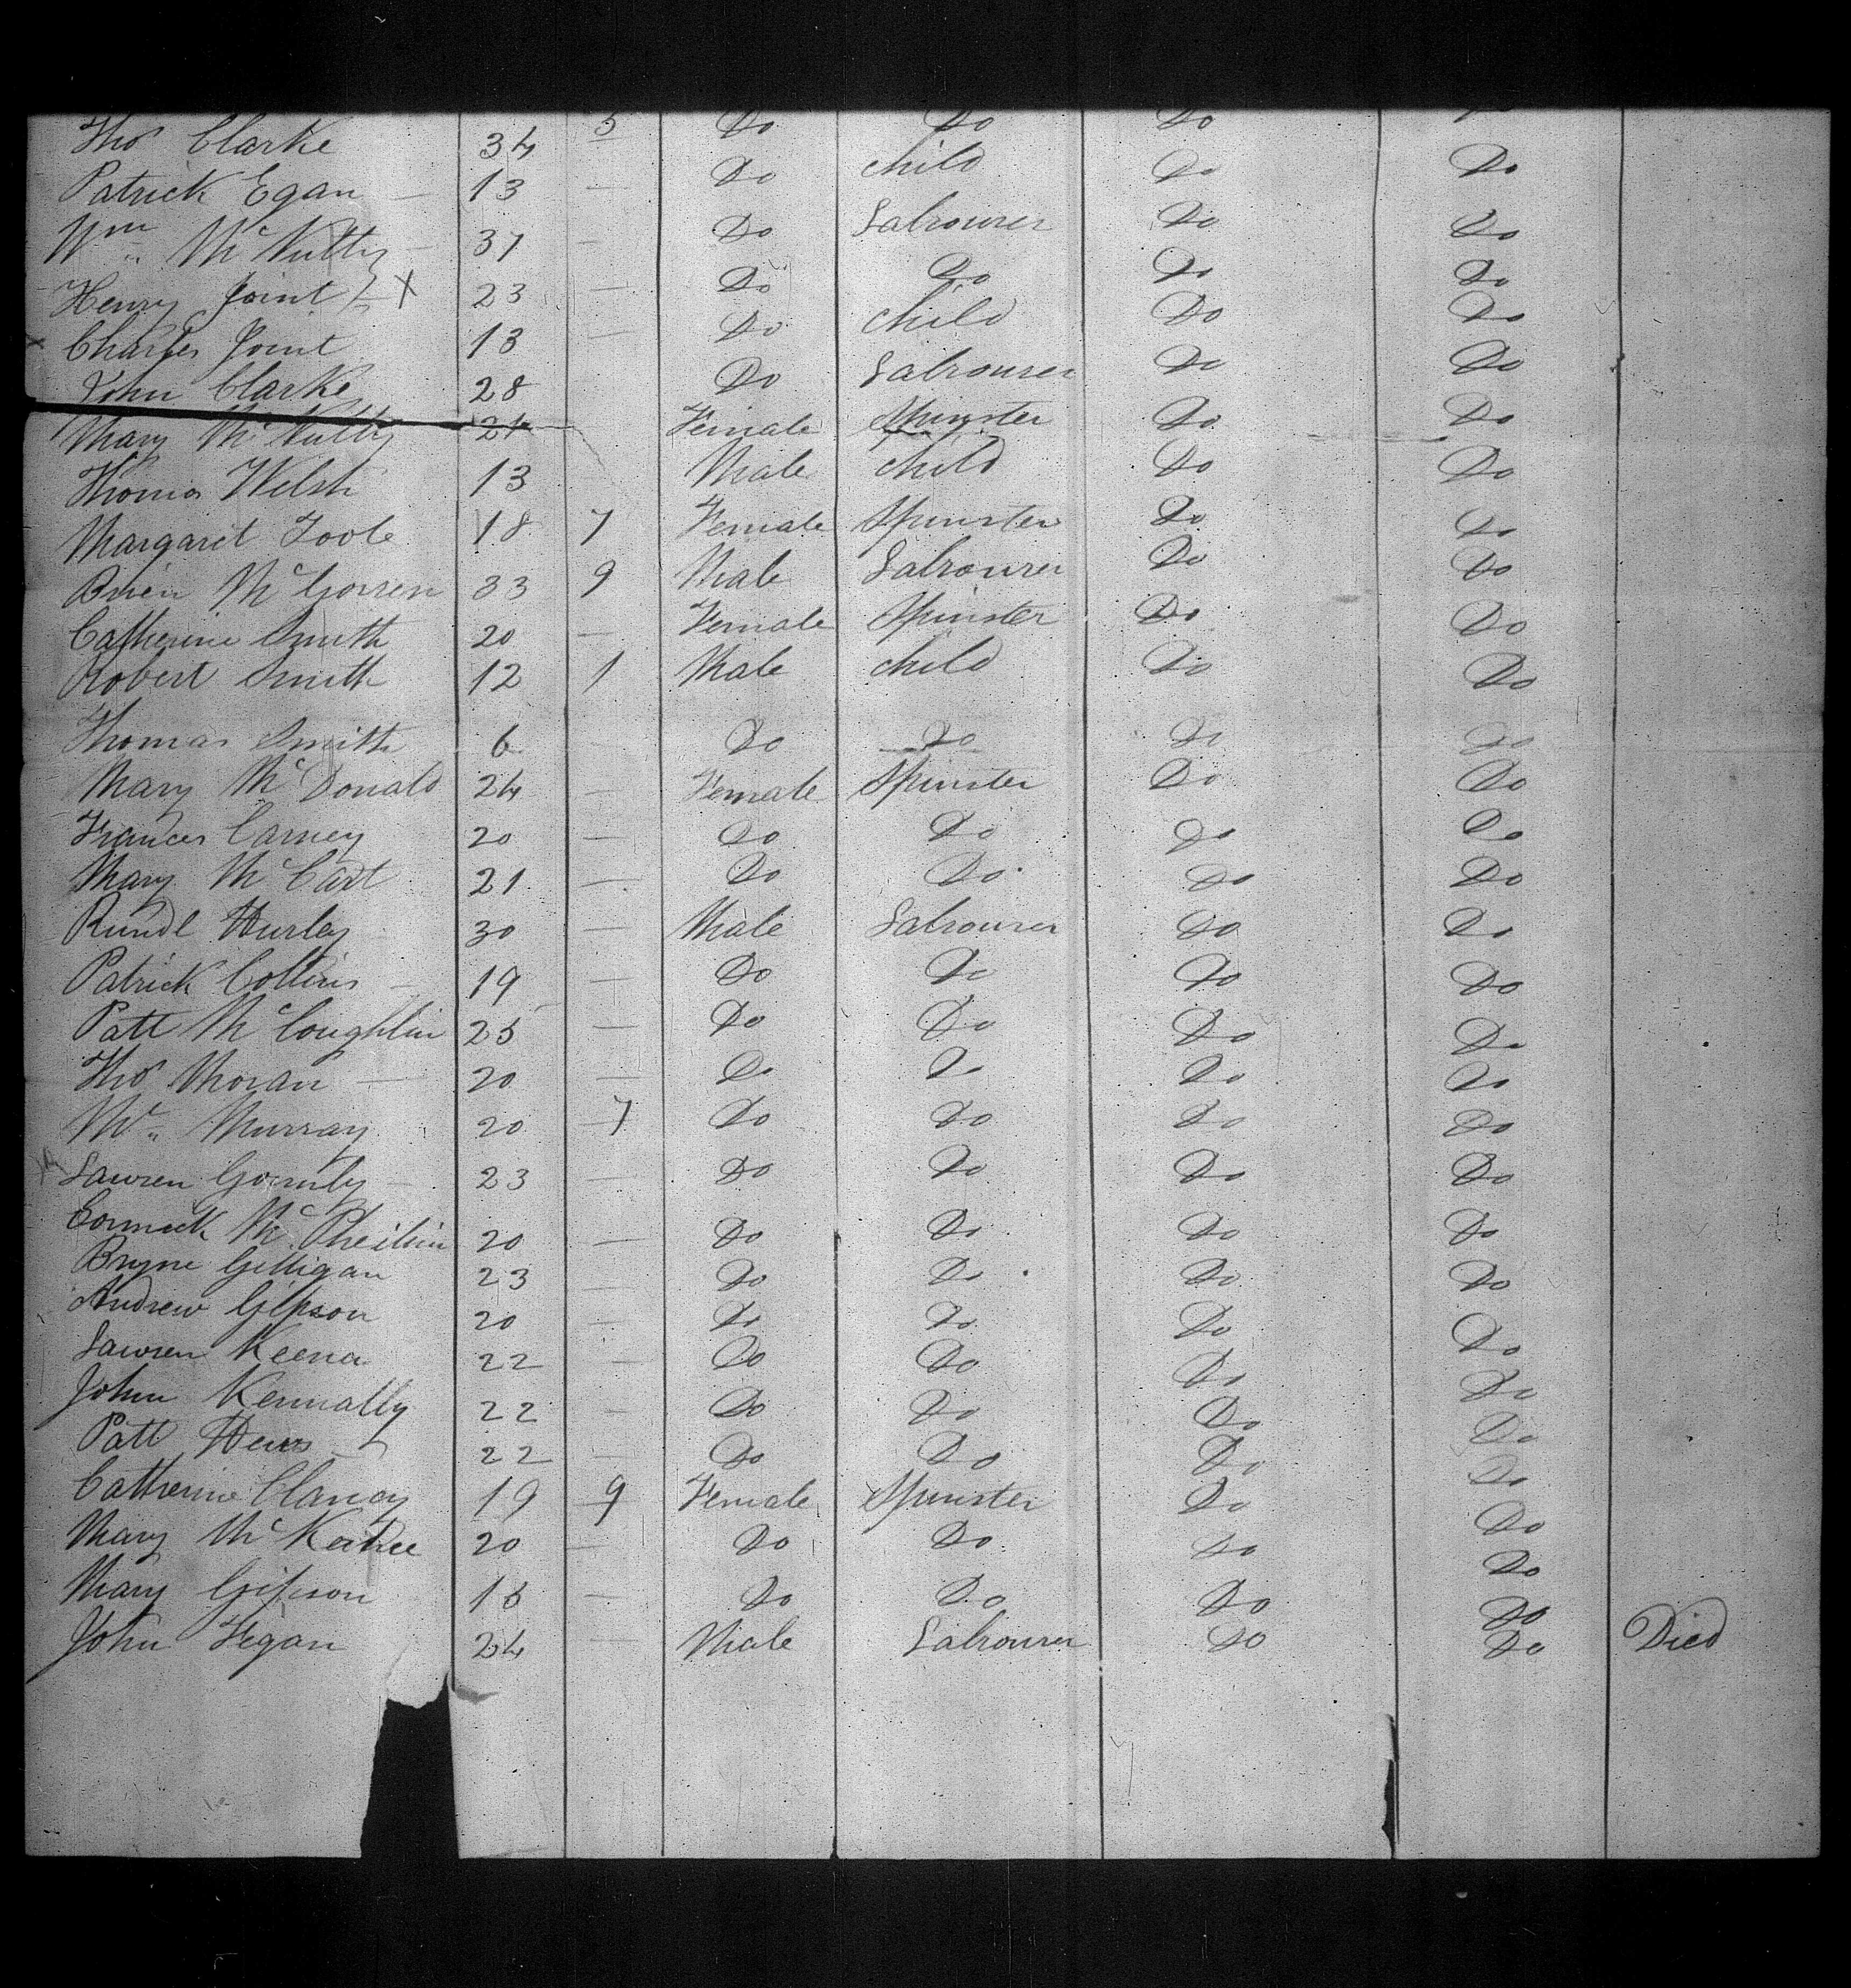 Thos Clarke 34 5 Do Do Do
Patrick Egan — 13 — Do child Do Do
Wm " McNulty — 37 — Do Labrourer Do Do
Henry Joint X 23 — Do Do Do Do
Charles Joint 13 — Do child Do Do
John Clarke 28 Do Labrourer Do Do
Mary McNulty 24 Female Spinster Do Do
Thomas Welsh 13 Male child Do Do
Margaret Toole 18 7 Female Spinster Do Do
Brien McGorren 33 9 Male Labrourer Do Do
Catherine Smith 20 — Female Spinster Do Do
Robert Smith 12 1 Male child Do Do
Thomas Smith 6 — Do Do Do Do
Mary McDonald 24 — Female Spinster Do Do
Frances Carney 20 — Do Do Do Do
Mary McCart 21 — Do Do Do Do
Hurley 30 — Male Labrourer Do Do
Patrick Collins — 19 — Do Do Do Do
Patt McCoughlin 25 — Do Do Do Do
Thos Moran — 20 — Do Do Do Do
" Murray 20 7 Do Do Do Do
Lawren Gormly — 23 — Do Do Do Do
Cormick 20 — Do Do Do Do
Bryne Gilligan 23 — Do Do Do Do
Andrew Gipson 20 — Do Do Do Do
Lawren Keena 22 — Do Do Do Do
John Kennally 22 — Do Do Do Do
Patt Hews 22 — Do Do Do Do
Catherine Clancy 19 9 Female Spinster Do Do
Mary 20 — Do Do Do Do
Mary Gipson 18 — Do Do Do Do
John Fegan 24 — Male Labrourer Do Do Died